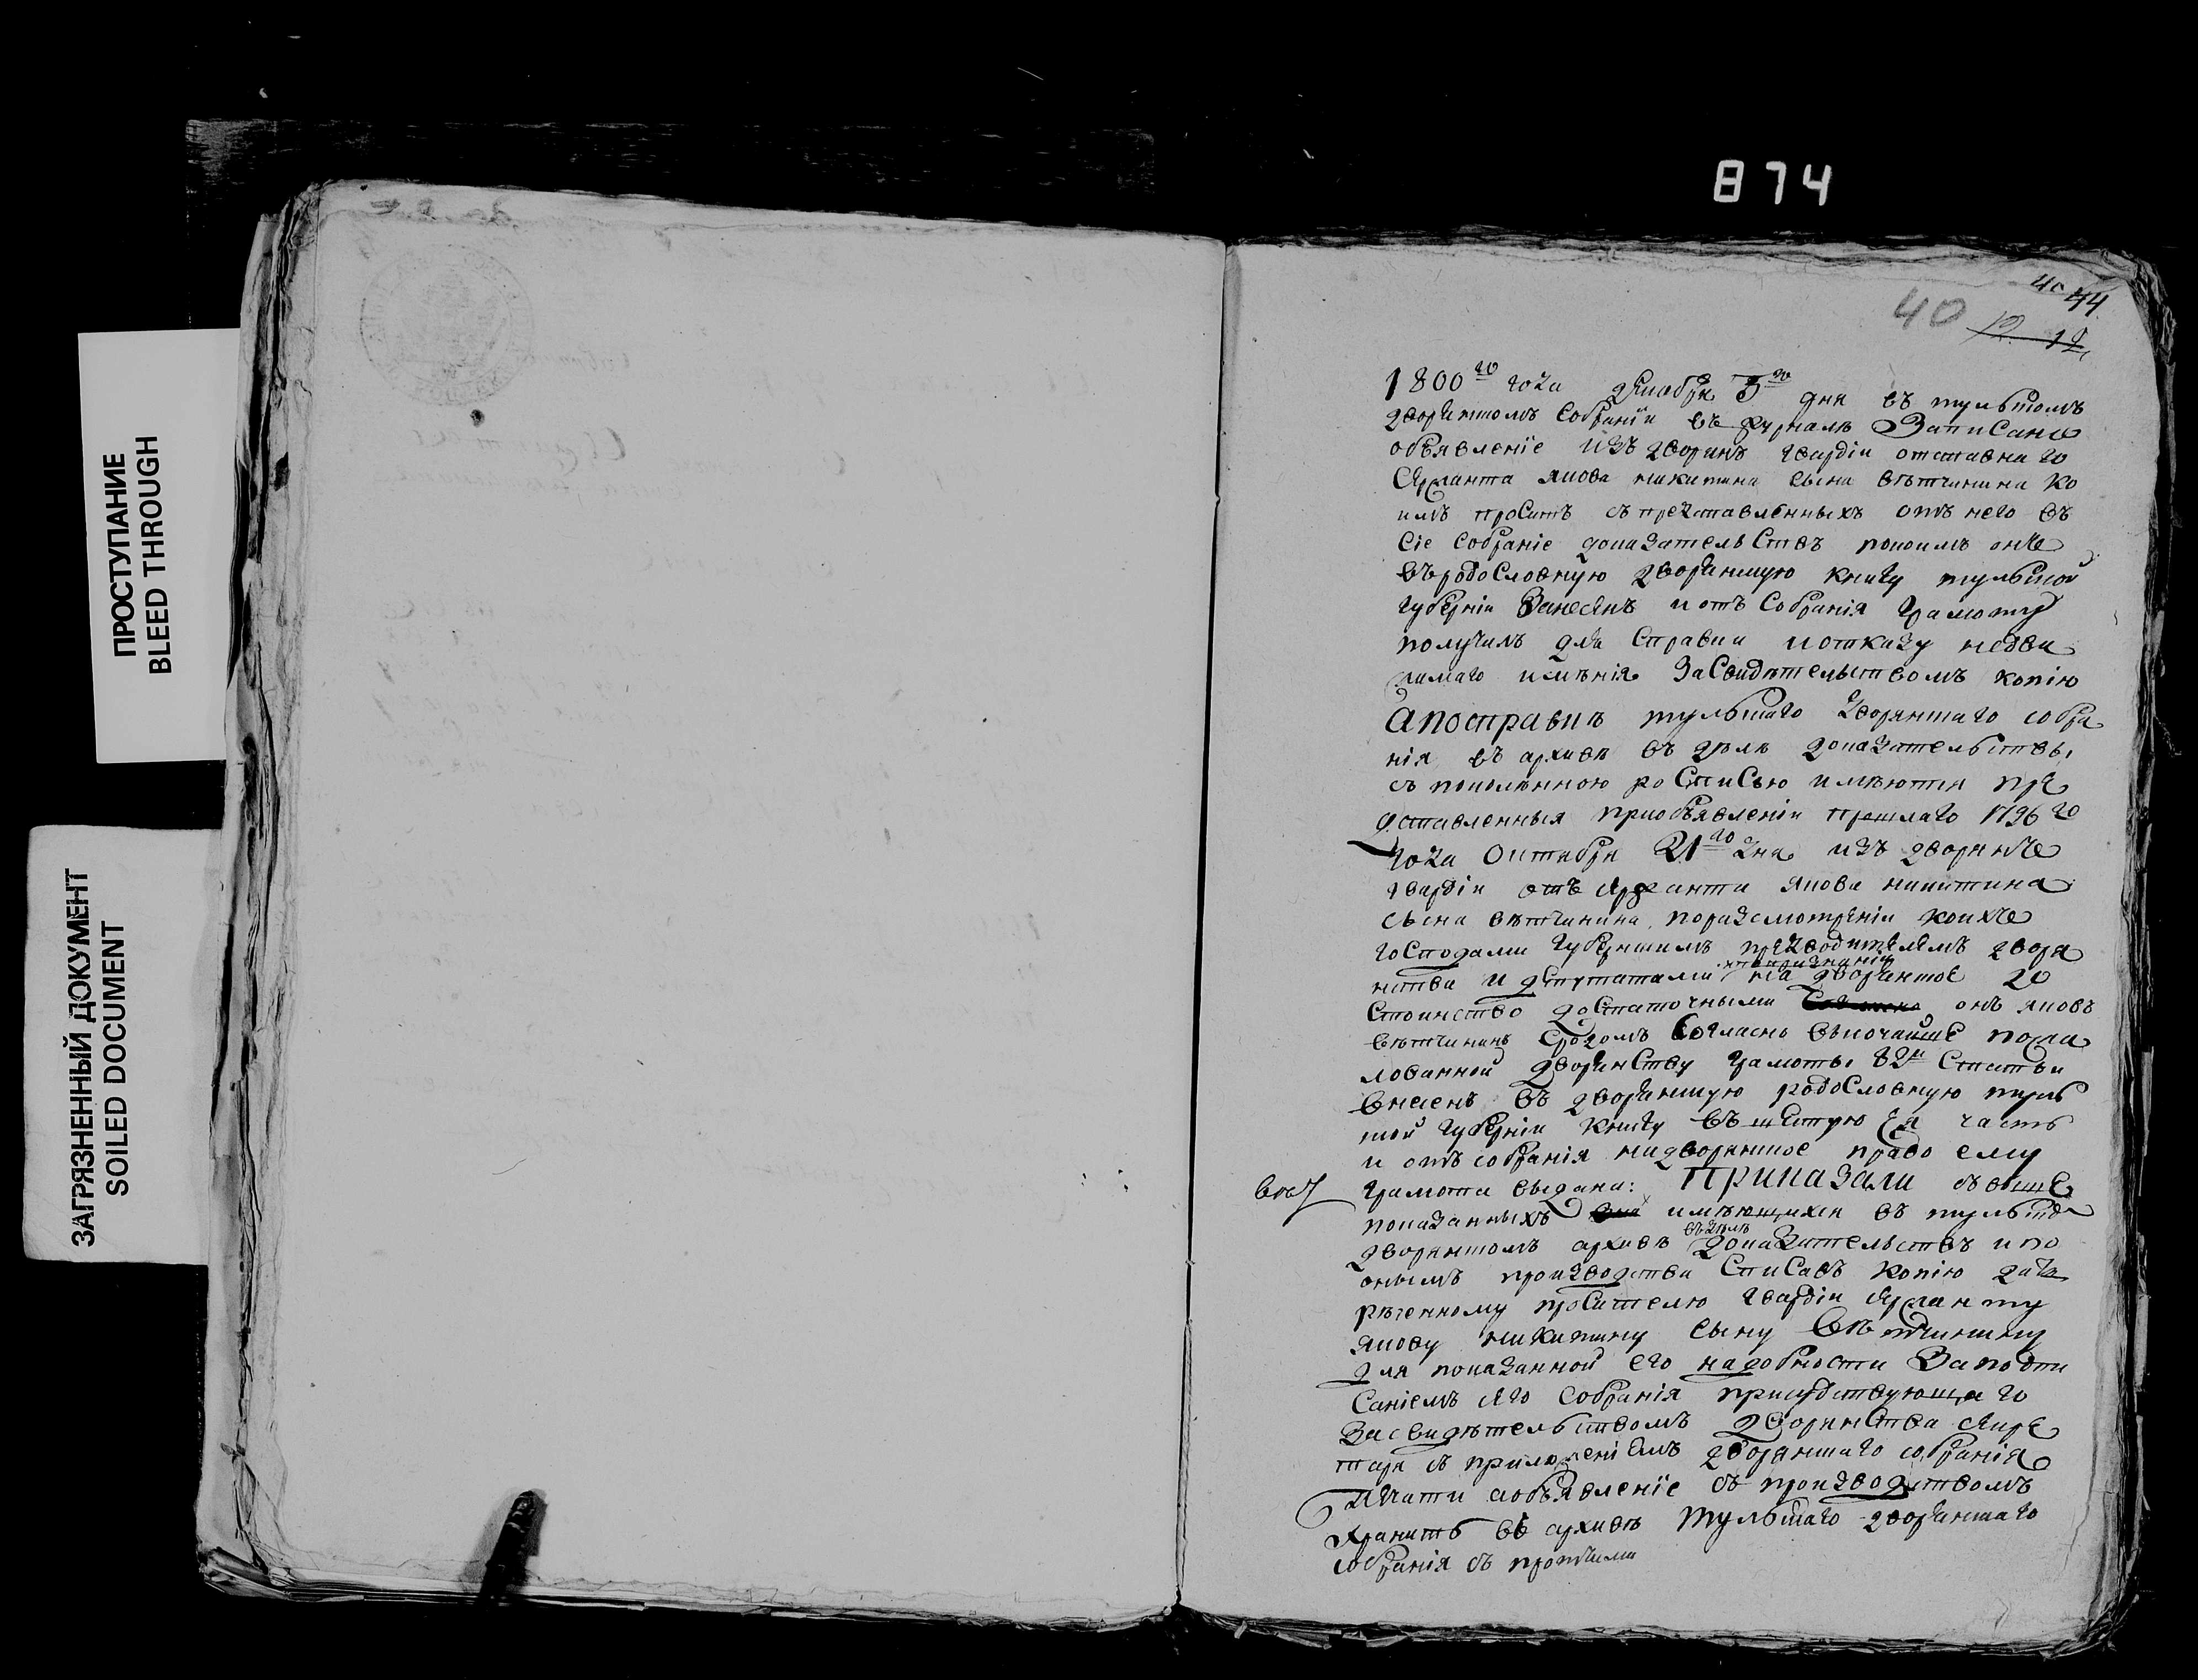 874
ПРОСТУПАНИЕ
BLEED THROUGH
ЗАГРЯЗНЕННЫЙ ДОКУМЕНТ
SOILED DOCUMENT
40 44
40
12
1800го года декабря 5го дня въ тульскомъ
дворянскомъ собраніи въ журналѣ Записано
объявленіе изъ дворянъ гвардіи отставнаго
сержанта якова никитина сына вѣтчинина ко
имъ проситъ съ представленныхъ отъ него въ
сіе собраніе доказательствъ покоимъ онже
въ родословную дворянскую книгу тульской
губерніи Занесенъ и отъ собранія грамоту
получилъ для справки и отказу недви
жимаго имѣнія Засвидѣтельствомъ копію
Апосправкѣ тульскаго дворянскаго собра
нія въ архивѣ въ дѣлѣ доказательствы
съ поколѣнною росписью имѣются пре
дставленныя приобъявленіи прошлаго 1796го
года октября 21го дня изъ дворянже
гвардіи отъ сержанта якова никитина
сына вѣтчинина, поразсмотреніи коихже
господами губернскимъ предводителемъ дворя
нства и депутатами попризнаніи на дворянское до
стоинство достаточными онъ яковъ
вѣтчининъ Сродомъ Согласно высочайше пожа
лованной дворянству грамоты 82й статьи
внесенъ въ дворянскую родословную туль
ской губерніи книгу въ шестую ея часть
и отъ собранія надворянское право ему
грамота выдана: Приказали съ выше
показанныхъ имѣющихся въ тульско
дворянскомъ архивѣ въ дѣлѣ доказательствъ и по
онымъ производства списавъ копію дать
рѣченному просителю гвардіи сержанту
якову никитину сыну вѣтчинину
для показанной его надобности Заподпи
саніемъ сего собранія присудствующаго
Засвидѣтельствомъ дворянства секре
таря съ приложеніемъ дворянскаго собранія
печати аобъявленіе съ производствомъ
хранить въ архивѣ тульскаго дворянскаго
собранія съ протчими